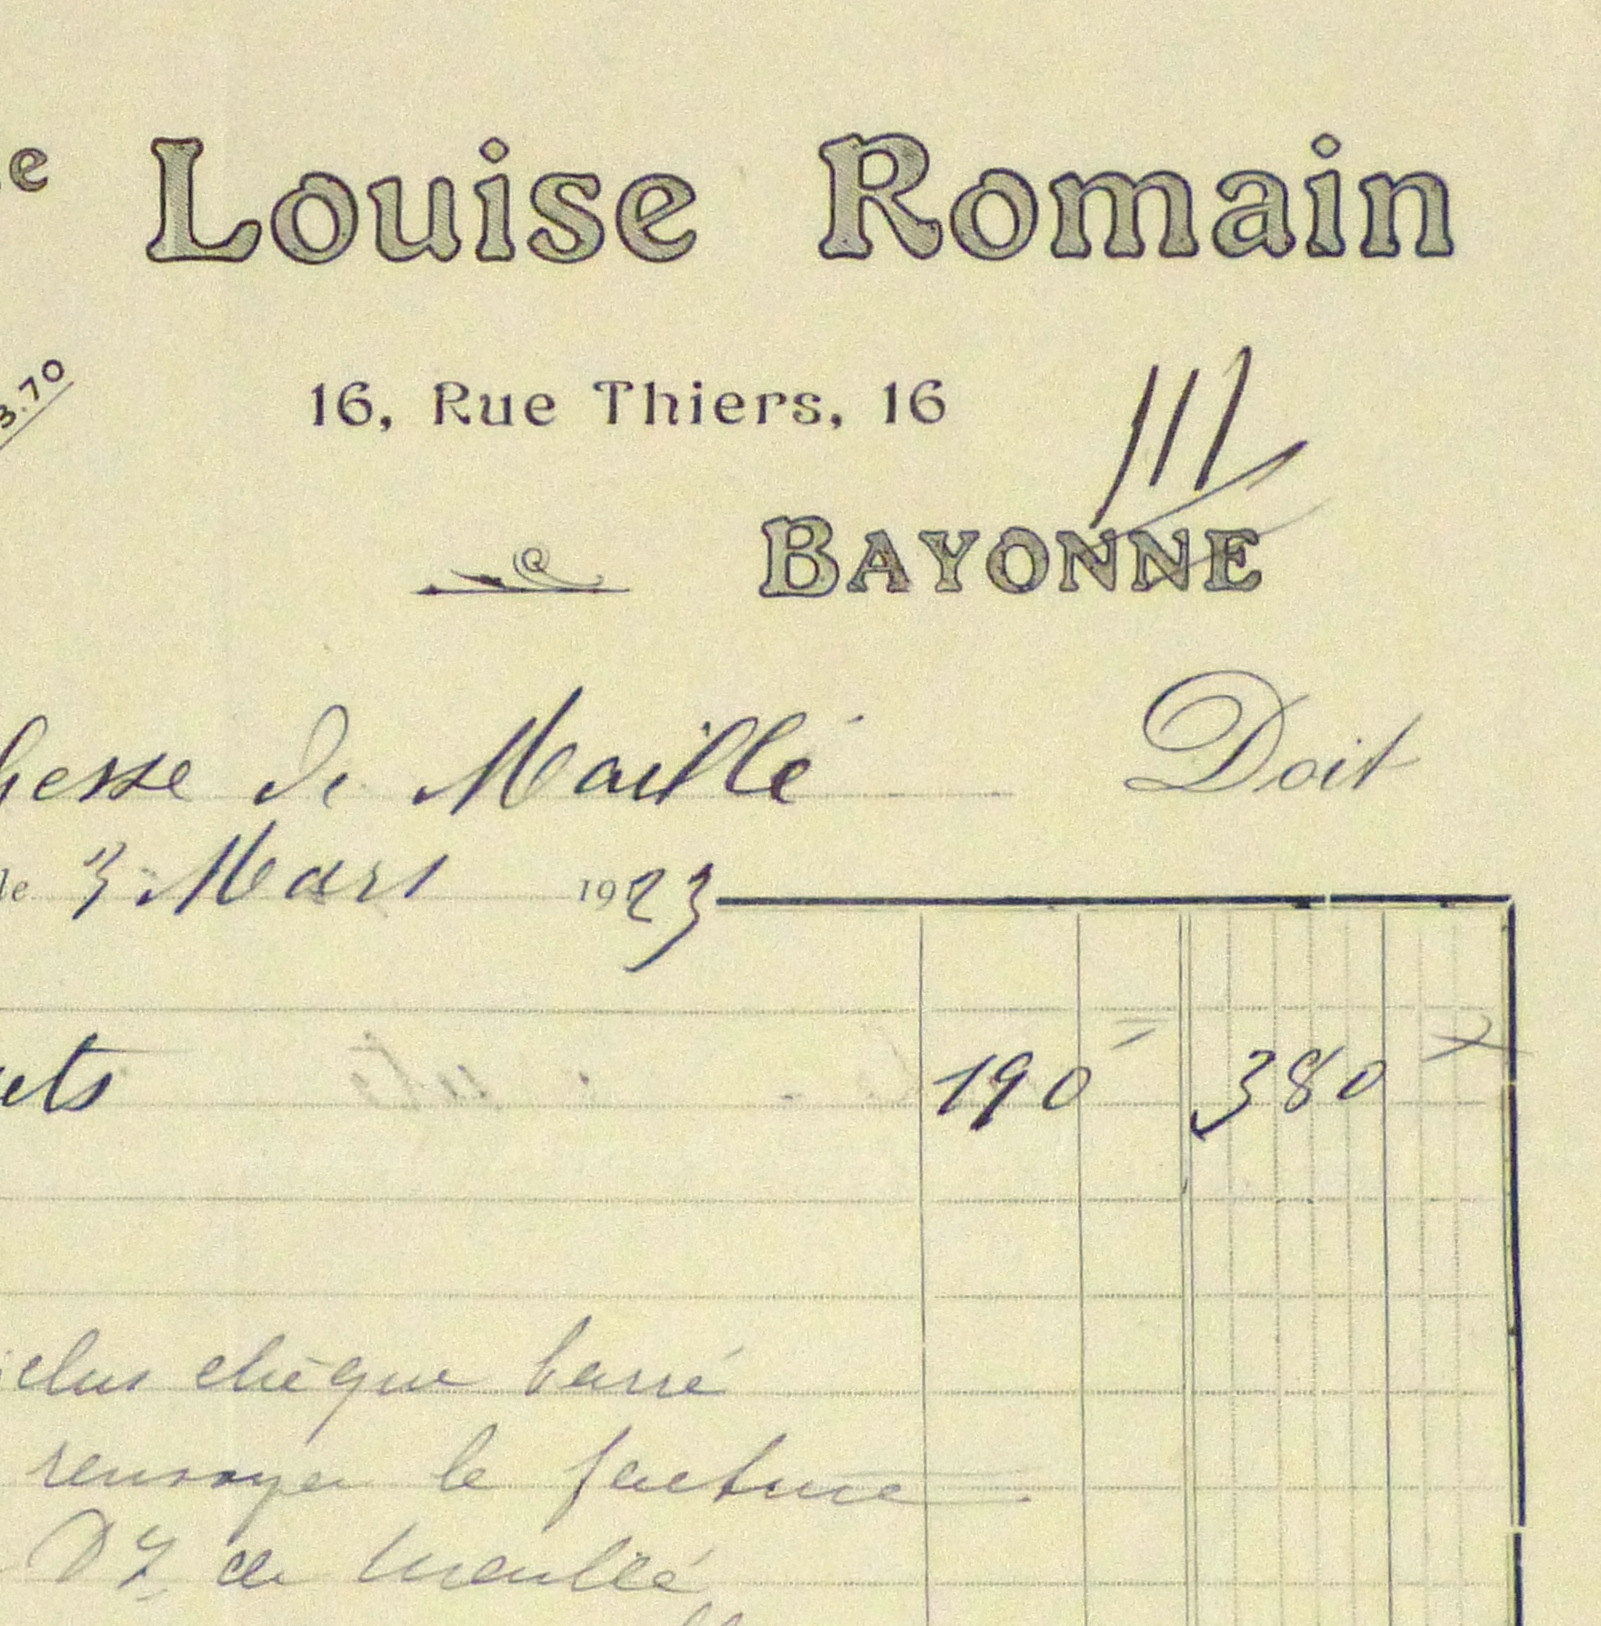 e Louise Romain
3.70
16, Rue Thiers, 16
BAYONNE
hesse de Maillé Doit
le 3 Mars 1923
ets 190 = 380
clus chèque barré
renvoyer la facture
de Maillé